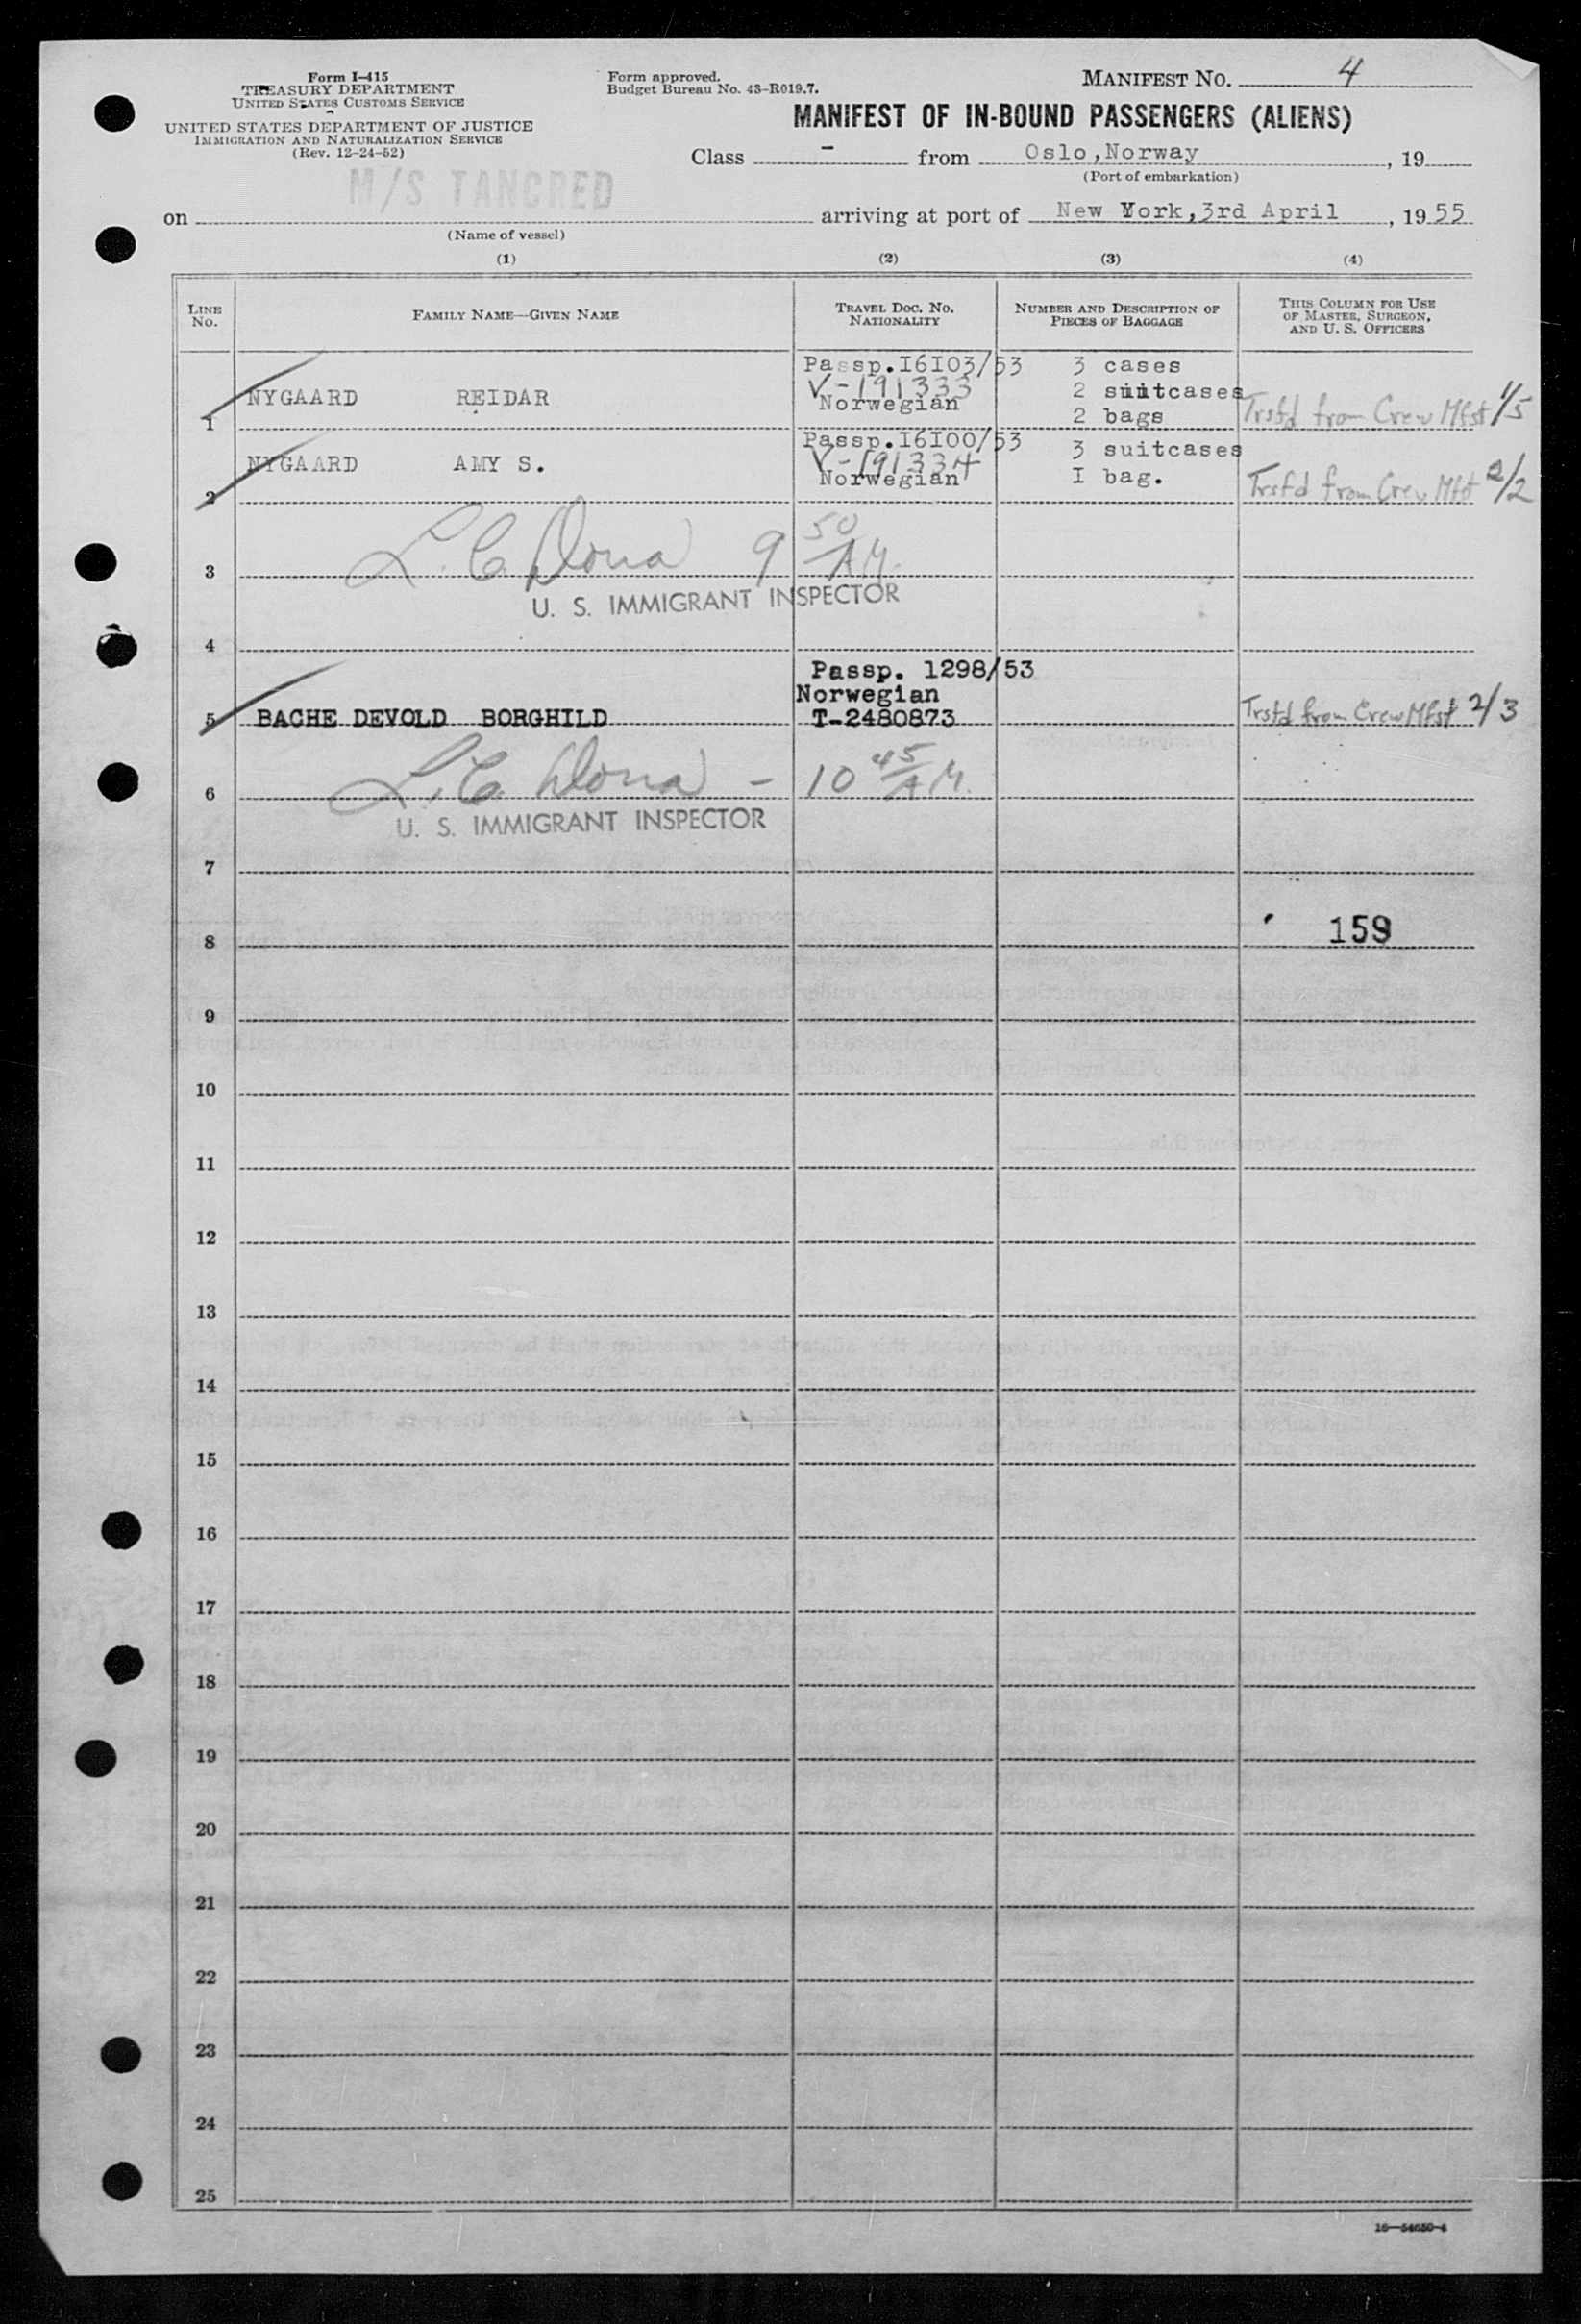 Form I-415
TREASURY DEPARTMENT
UNITED STATES CUSTOMS SERVICE
UNITED STATES DEPARTMENT OF JUSTICE
IMMIGRATION AND NATURALIZATION SERVICE
(Rev. 12-24-52)
Form approved.
Budget Bureau No. 43-R019.7.
MANIFEST NO. 4
MANIFEST OF IN-BOUND PASSENGERS (ALIENS)
Class - from Oslo,Norway, 19
(Port of embarkation)
M/S TANCRED
on arriving at port of New York,3rd April, 1955
(Name of vessel)
(1) (2) (3) (4)
LINE No.
FAMILY NAME—GIVEN NAME
TRAVEL DOC. NO. NATIONALITY
NUMBER AND DESCRIPTION OF PIECES OF BAGGAGE
THIS COLUMN FOR USE OF MASTER, SURGEON, AND U. S. OFFICERS
Passp.I6I03/53 3 cases
V-191333 2 suitcases
NYGAARD REIDAR Norwegian
1 2 bags Trsfd from Crew Mfst 1/5
Passp.I6I00/53 3 suitcases
NYGAARD AMY S. V-191334
Norwegian I bag.
2 Trsfd from Crew Mfst 2/2
L. C. Dona 9 50/AM.
3
U. S. IMMIGRANT INSPECTOR
4
Passp. 1298/53
Norwegian
5 BACHE DEVOLD BORGHILD T-2480873 Trsfd from Crew Mfst 2/3
L. C. Dona - 10 45/AM.
6
U. S. IMMIGRANT INSPECTOR
7
8 159
9
10
11
12
13
14
15
16
17
18
19
20
21
22
23
24
25